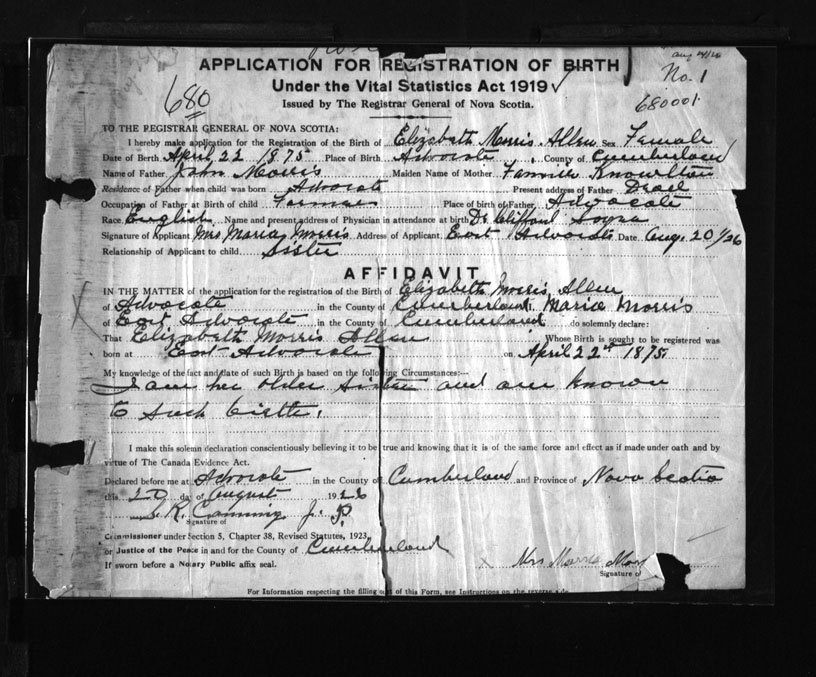 Aug 20/26
APPLICATION FOR REGISTRATION OF BIRTH
No. 1
Under the Vital Statistics Act 1919
680
680001
Issued by The Registrar General of Nova Scotia.
TO THE REGISTRAR GENERAL OF NOVA SCOTIA:
I hereby make application for the Registration of the Birth of Elizabeth Morris Allen Sex Female
Date of Birth April 22 1875 Place of Birth Advocate County of Cumberland
Name of Father John Morris Maiden Name of Mother Knowlton
Residence of Father when child was born Advocate Present address of Father Dead
Occupation of Father at Birth of child Farmer Place of birth of Father Advocate
Race English Name and present address of Physician in attendance at birth Dr. Clifford
Signature of Applicant Mrs Maria Morris Address of Applicant East Advocate Date Aug. 20/26
Relationship of Applicant to child Sister
AFFIDAVIT
IN THE MATTER of the application for the registration of the Birth of Elizabeth Morris Allen
of Advocate in the County of Cumberland, Maria Morris
of East Advocate in the County of Cumberland do solemnly declare:
That Elizabeth Morris Allen Whose Birth is sought to be registered was
born at East Advocate on April 22nd 1875
My knowledge of the fact and date of such Birth is based on the following Circumstances:—
I am her older sister and am known
to such birth.
I make this solemn declaration conscientiously believing it to be true and knowing that it is of the same force and effect as if made under oath and by
virtue of The Canada Evidence Act.
Declared before me at Advocate in the County of Cumberland and Province of Nova Scotia
this 20 day of August 1926
K. Canning J. P.
Signature of
Commissioner under Section 5, Chapter 38, Revised Statutes, 1923,
or Justice of the Peace in and for the County of Cumberland
If sworn before a Notary Public affix seal.
x Mrs Maria Mor
Signature of
For Information respecting the filling out of this Form, see Instructions on the reverse side